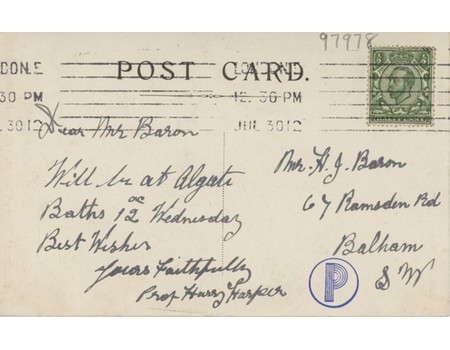 97978
DON.E
LONDON.E
30 PM
12.30 PM
JUL 30 12
POST CARD.
Dear Mr Baron
Will be at Algate
Baths 12 oc Wednesday
Best Wishes
Yours Faithfully
Prof Harry Harper
Mr. H. J. Baron
67 Ramsden Rd
Balham
S W
P